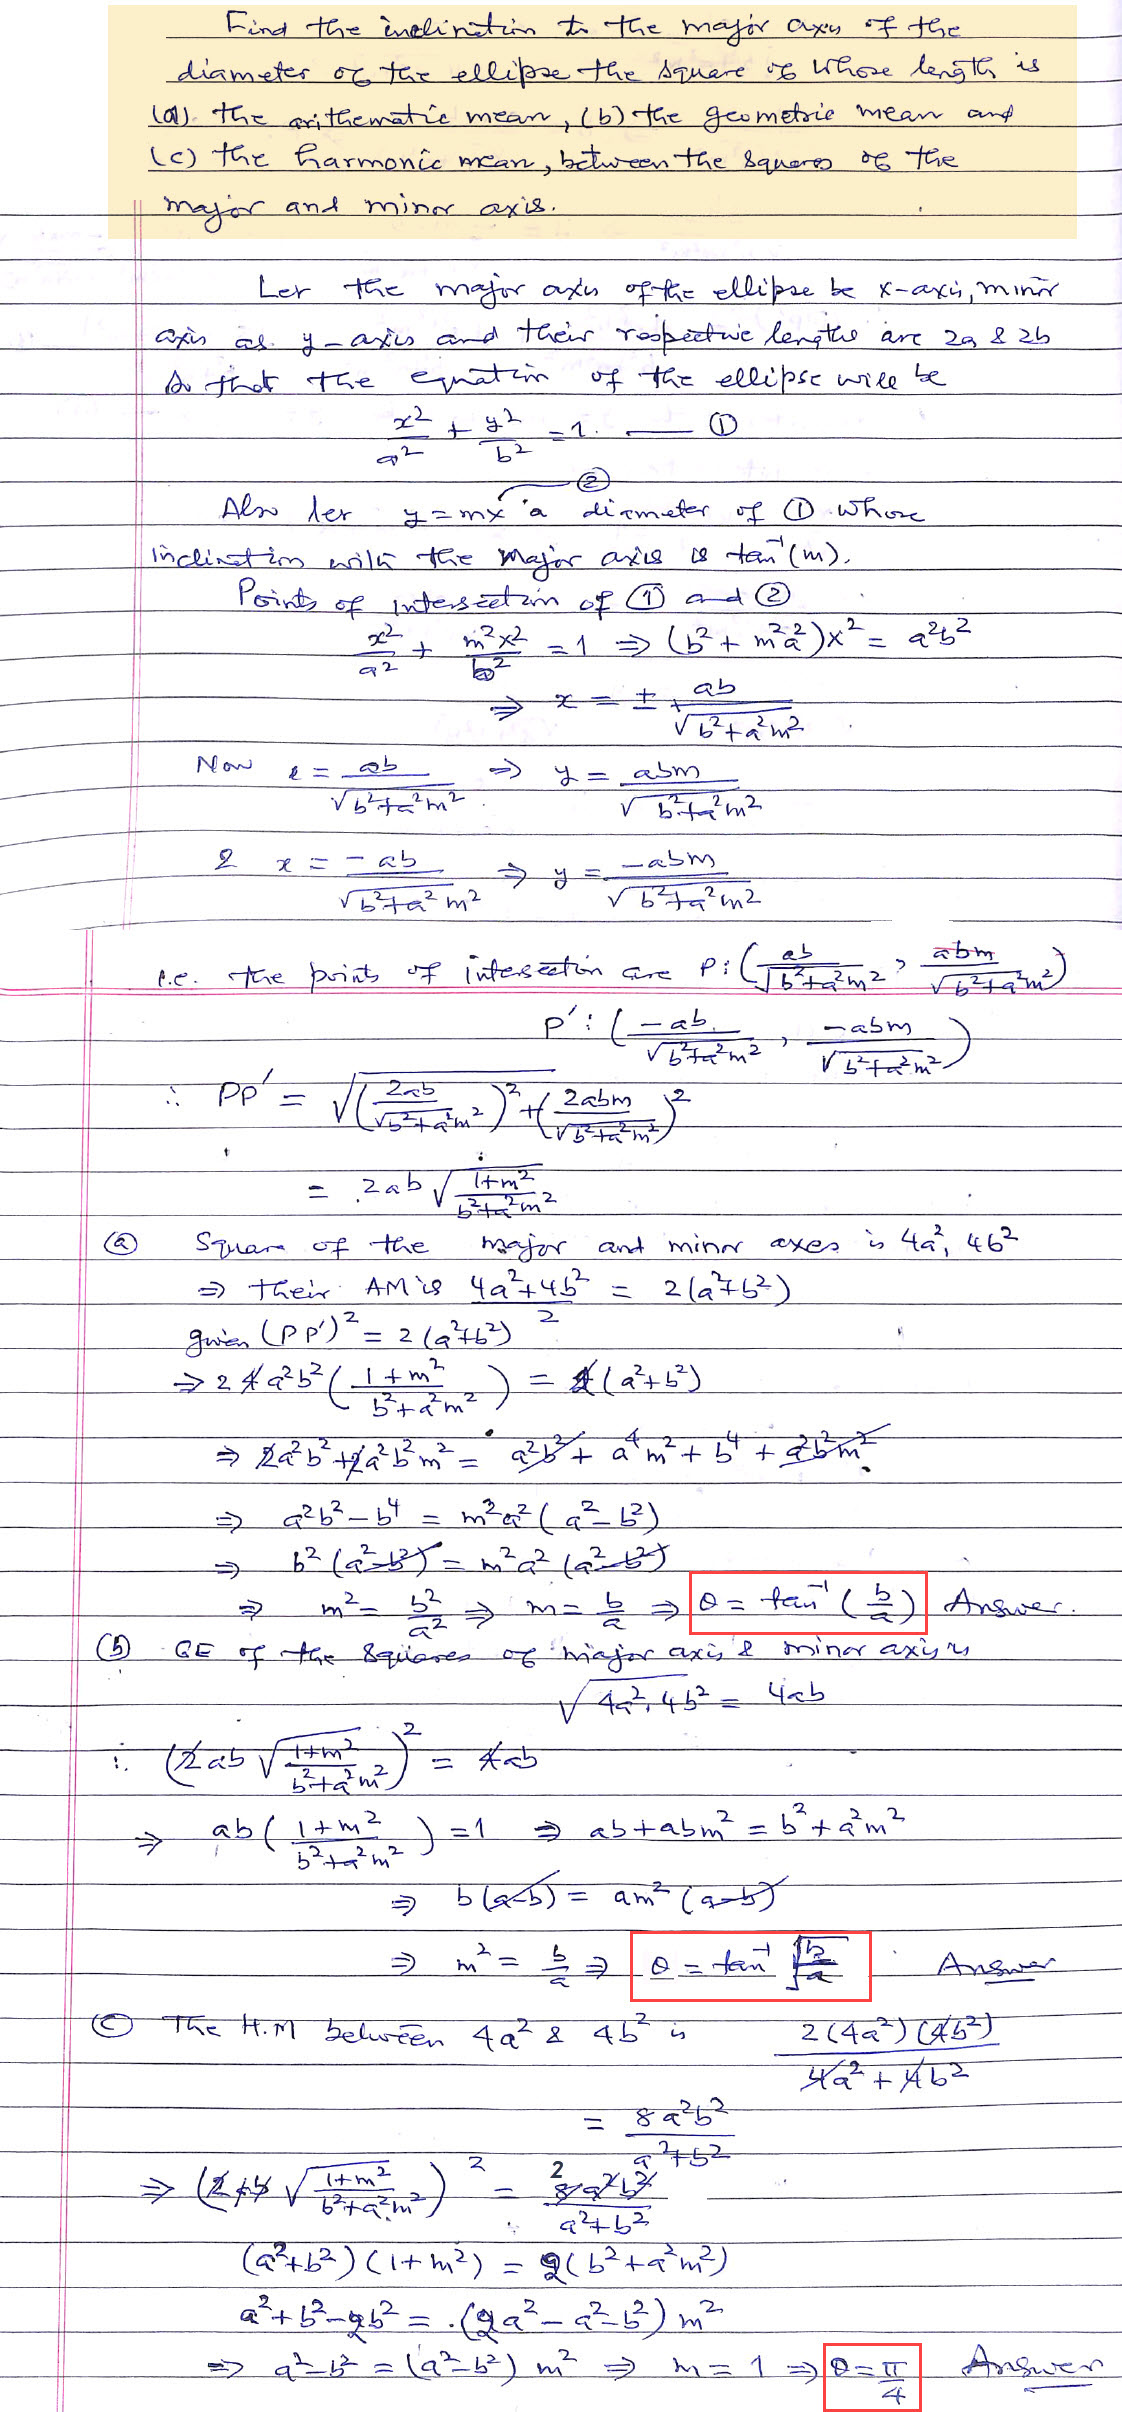 Find the inclination to the major axis of the
diameter of the ellipse the square of whose length is
(a) the arithematic mean, (b) the geometric mean and
(c) the harmonic mean, between the squares of the
major and minor axis.
Let the major axis of the ellipse be x-axis, minor
axis as y-axis and their respective lengths are 2a & 2b
so that the equation of the ellipse will be
x²/a² + y²/b² = 1. — ①
Also let y = mx ② a diameter of ① whose
inclination with the major axis is tan⁻¹(m).
Points of intersection of ① and ②
x²/a² + m²x²/b² = 1 ⇒ (b² + m²a²)x² = a²b²
⇒ x = ± ab/√(b²+a²m²)
Now x = ab/√(b²+a²m²) ⇒ y = abm/√(b²+a²m²)
& x = -ab/√(b²+a²m²) ⇒ y = -abm/√(b²+a²m²)
i.e. the points of intersection are P: (ab/√(b²+a²m²), abm/√(b²+a²m²))
P': (-ab/√(b²+a²m²), -abm/√(b²+a²m²))
∴ PP' = √((2ab/√(b²+a²m²))² + (2abm/√(b²+a²m²))²)
= 2ab √((1+m²)/(b²+a²m²))
(a) Square of the major and minor axes is 4a², 4b²
⇒ their AM is (4a²+4b²)/2 = 2(a²+b²)
given (PP')² = 2(a²+b²)
⇒ 2 4a²b² ((1+m²)/(b²+a²m²)) = 2(a²+b²)
⇒ 2a²b² + 2a²b²m² = a²b² + a⁴m² + b⁴ + a²b²m²
⇒ a²b² - b⁴ = m²a²(a²-b²)
⇒ b²(a²-b²) = m²a²(a²-b²)
⇒ m² = b²/a² ⇒ m = b/a ⇒ θ = tan⁻¹(b/a) Answer.
(b) GE of the squares of major axis & minor axis is
√(4a².4b²) = 4ab
∴ (2ab √((1+m²)/(b²+a²m²)))² = 4ab
⇒ ab((1+m²)/(b²+a²m²)) = 1 ⇒ ab+abm² = b²+a²m²
⇒ b(a-b) = am²(a-b)
⇒ m² = b/a ⇒ θ = tan⁻¹ √(b/a) Answer
(c) The H.M between 4a² & 4b² is 2(4a²)(4b²)/(4a²+4b²)
= 8a²b²/(a²+b²)
⇒ (2ab √((1+m²)/(b²+a²m²)))² = 2 8a²b²/(a²+b²)
(a²+b²)(1+m²) = 2(b²+a²m²)
a²+b²-2b² = (2a²-a²-b²)m²
⇒ a²-b² = (a²-b²)m² ⇒ m = 1 ⇒ θ = π/4 Answer